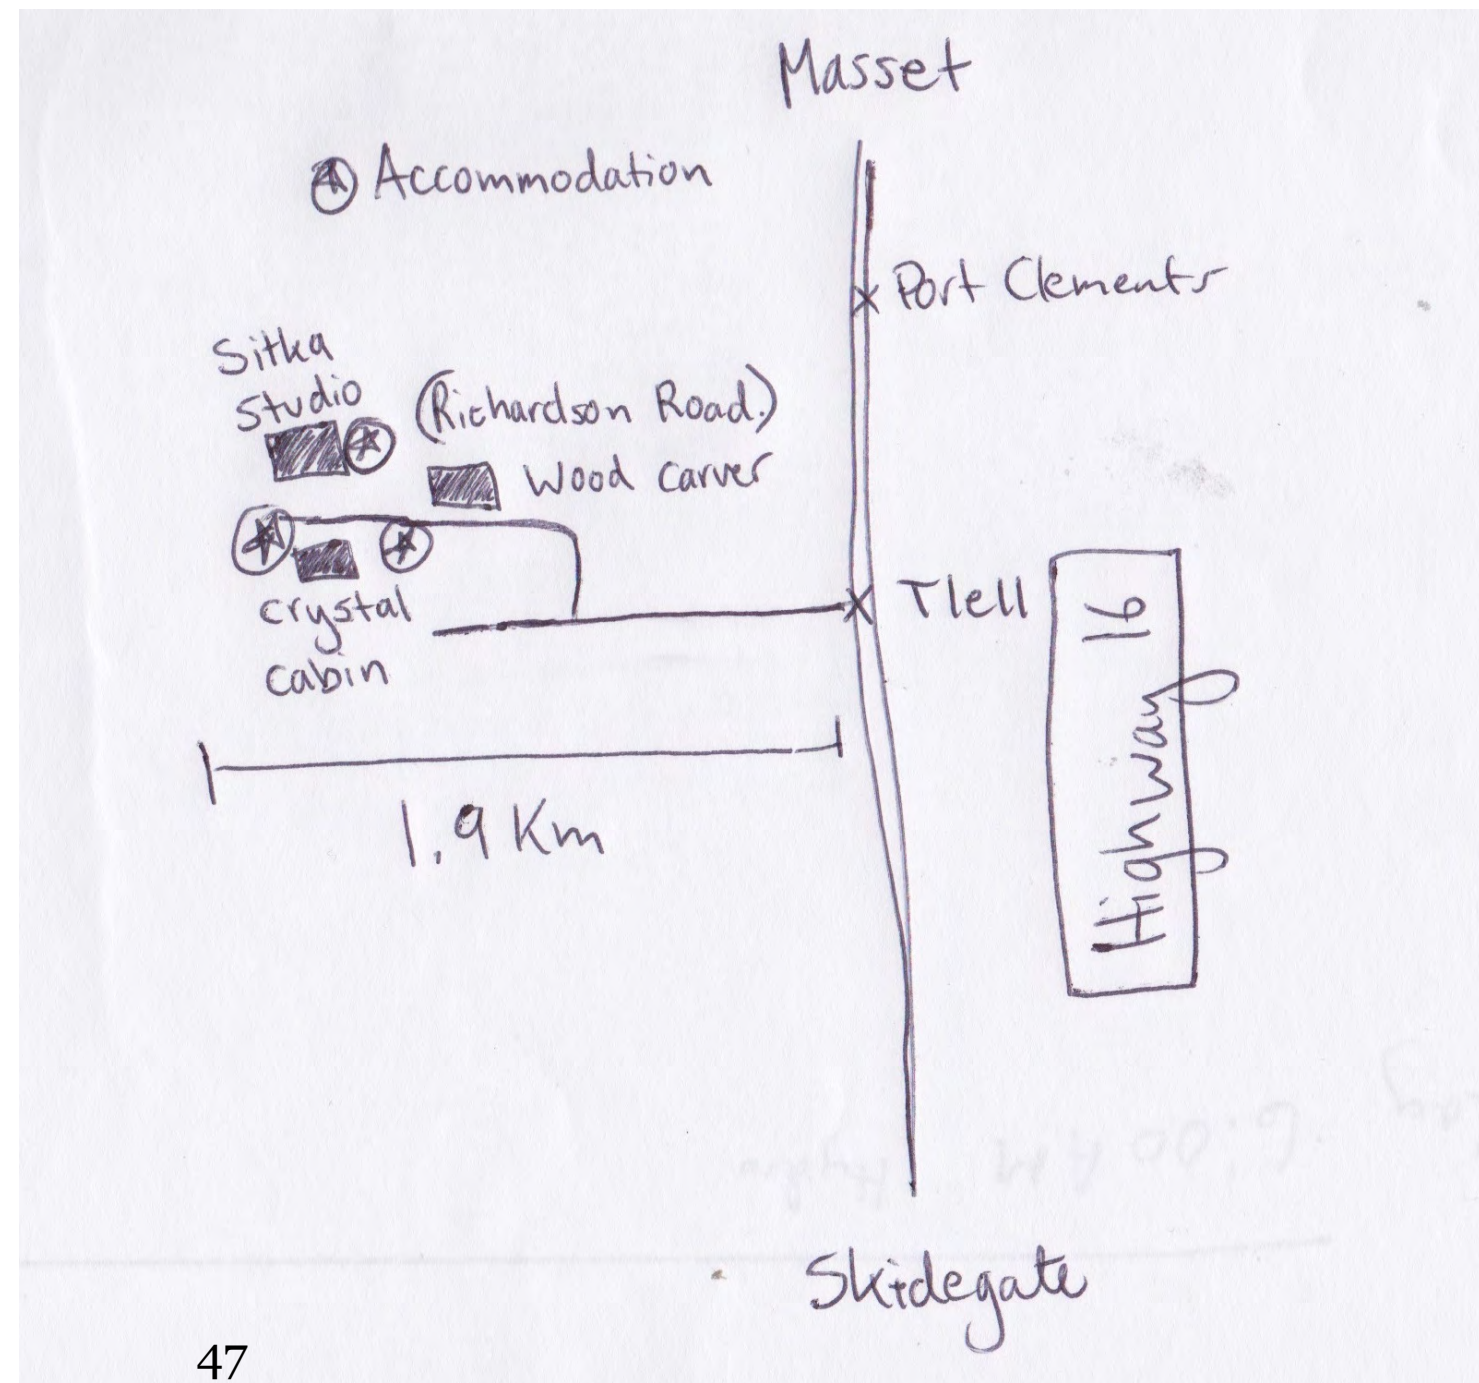 Masset
Accommodation
Port Clements
Sitka
Studio
(Richardson Road.)
Wood Carver
Tlell
crystal
cabin
Highway 16
1.9 Km
6:00 AM Hydro
Skidegate
47